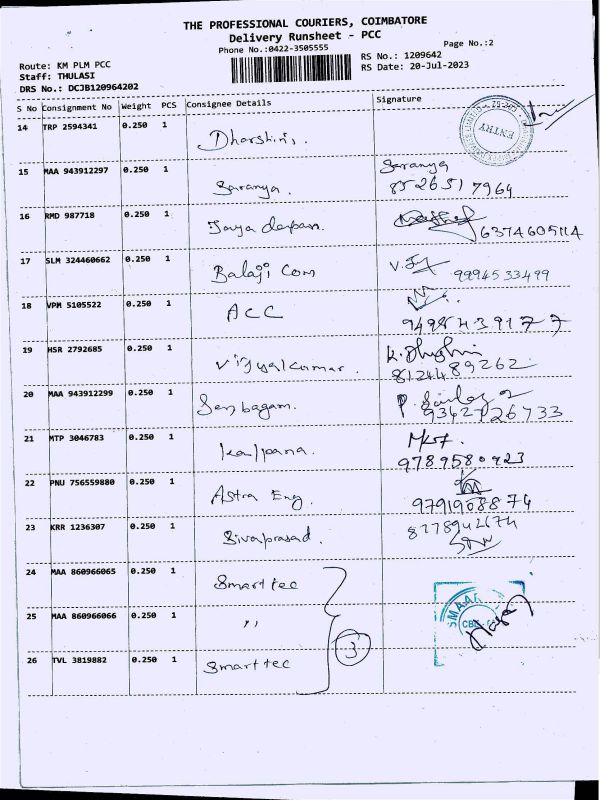 THE PROFESSIONAL COURIERS, COIMBATORE
Delivery Runsheet - PCC
Phone No.:0422-3505555
Page No.:2
Route: KM PLM PCC
RS No.: 1209642
Staff: THULASI
RS Date: 20-Jul-2023
DRS No.: DCJB120964202
S No Consignment No Weight PCS Consignee Details Signature
14 TRP 2594341 0.250 1 Dharshini. ENTRY
15 MAA 943912297 0.250 1 Saranya. Saranya
8526517964
16 RMD 987718 0.250 1 Jaya 6374605114
17 SLM 324460662 0.250 1 Balaji Com 9994533499
18 VPM 5105522 0.250 1 ACC
9498439177
19 HSR 2792685 0.250 1 Vijyalkumar.
8124489262
20 MAA 943912299 0.250 1 Senbagam.
9362726733
21 MTP 3046783 0.250 1 kalpana.
9789580923
22 PNU 756559880 0.250 1 Astra Eng.
9791908874
23 KRR 1236307 0.250 1 Sivaprasad.
24 MAA 860966065 0.250 1 Smarttec
25 MAA 860966066 0.250 1 ,,
26 TVL 3819882 0.250 1 Smarttec 3